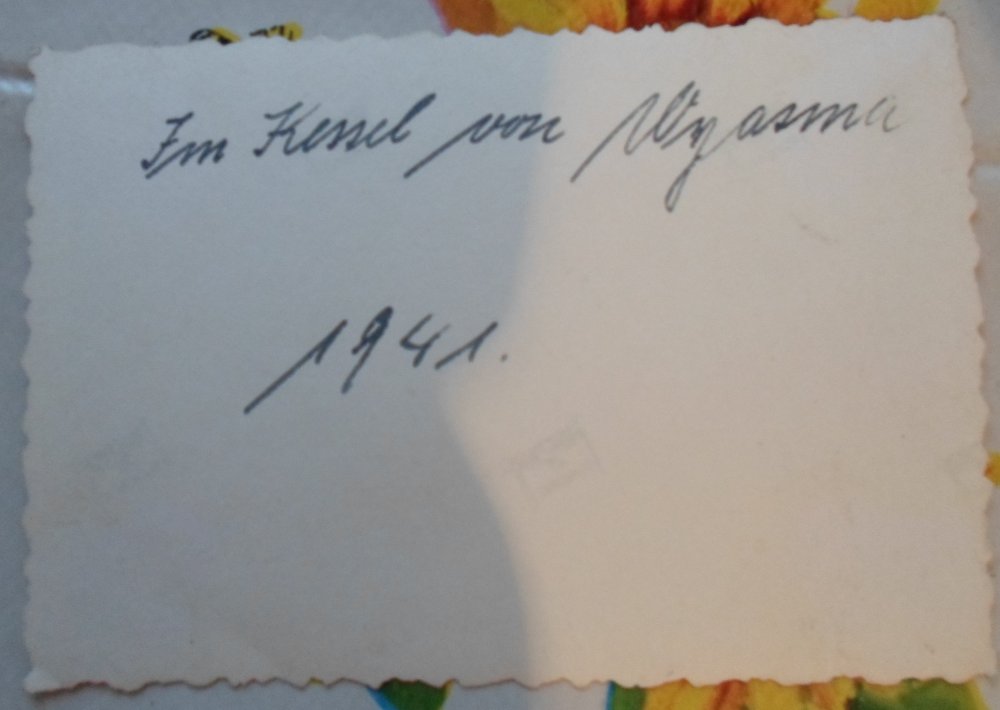 Im Kessel von Wyasma
1941.